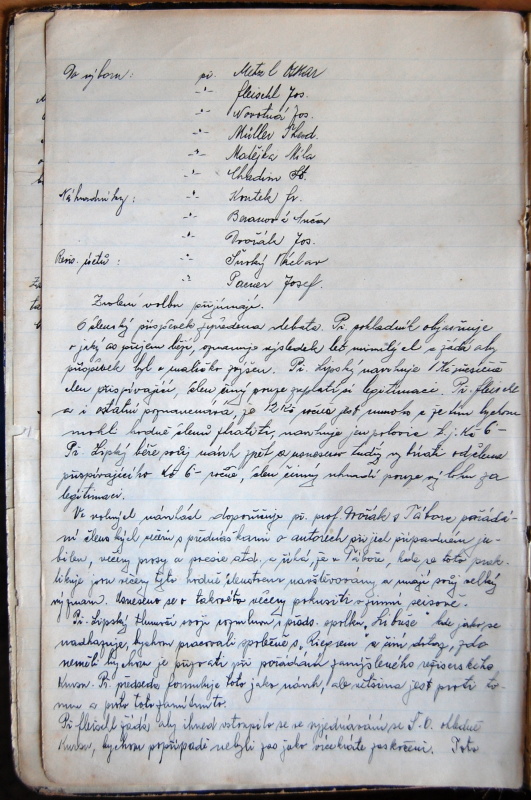 Do výboru: př. Metzl Otkar
-"- Fleischl Jos.
-"- Novotná Jos.
-"- Müller Vlad.
-"- Matějka Míla
-"- Chladim St.
Náhradníky: -"- Kontek Fr.
-"- Beranová Anča
-"- Dvořák Jos.
Revis. účtů: -"- Široký Václav
-"- Pacner Josef.
Zvolení volbu přijímají.
O členský příspěvek zavedena debata. Př. pokladník objasňuje
v jaký as příjem běží, oznamuje výsledek let minulých a žádá aby
příspěvek byl o maličko zvýšen. Př. Lipský navrhuje 1 Kč měsíčně
člen přispívající, člen činný pouze zaplatí si legitimaci. Př. Fleischl
a i ostatní poznamenává, že 12 Kč ročně jest mnoho a že tím bychom
mohli hodně členů ztratiti, navrhuje jen polovic t.j. Kč 6-
Př. Lipský béře svůj návrh zpět a usneseno tudíž vybírati od člena
přispívajícího Kč 6- ročně, člen činný uhradí pouze výlohu za
legitimaci.
Ve volných návrzích doporučuje př. prof. Dvořák z Tábora pořádá-
ní členských večerů s přednáškami o autorech při jich případném ju-
bileu, večery prosy a poesie atd. a říká, že v Táboře, kde se toto prak-
tikuje jsou večery tyto hodně členstvem navštěvovány a mají svůj velký
význam. Usneseno se o takovéto večery pokusiti v zimní seisoně.
Př. Lipský tlumočí svoji rozmluvu s předs. spolku "Libuše" kde jako se
nadhazuje, bychom pracovali společně s "Riegrem" a činí dotaz, zda
neměli bychom je přizvati při pořádání zamýšleného režisérského
kursu. Př. předseda formuluje toto jako návrh, ale většina jest proti to-
mu a proto toto zamítnuto.
Př. Fleischl žádá, aby ihned vstoupilo se ve vyjednávání se Š.O. ohledně
kursu, bychom popřípadě nebyli zas jako vícekráte zaskočeni. Toto